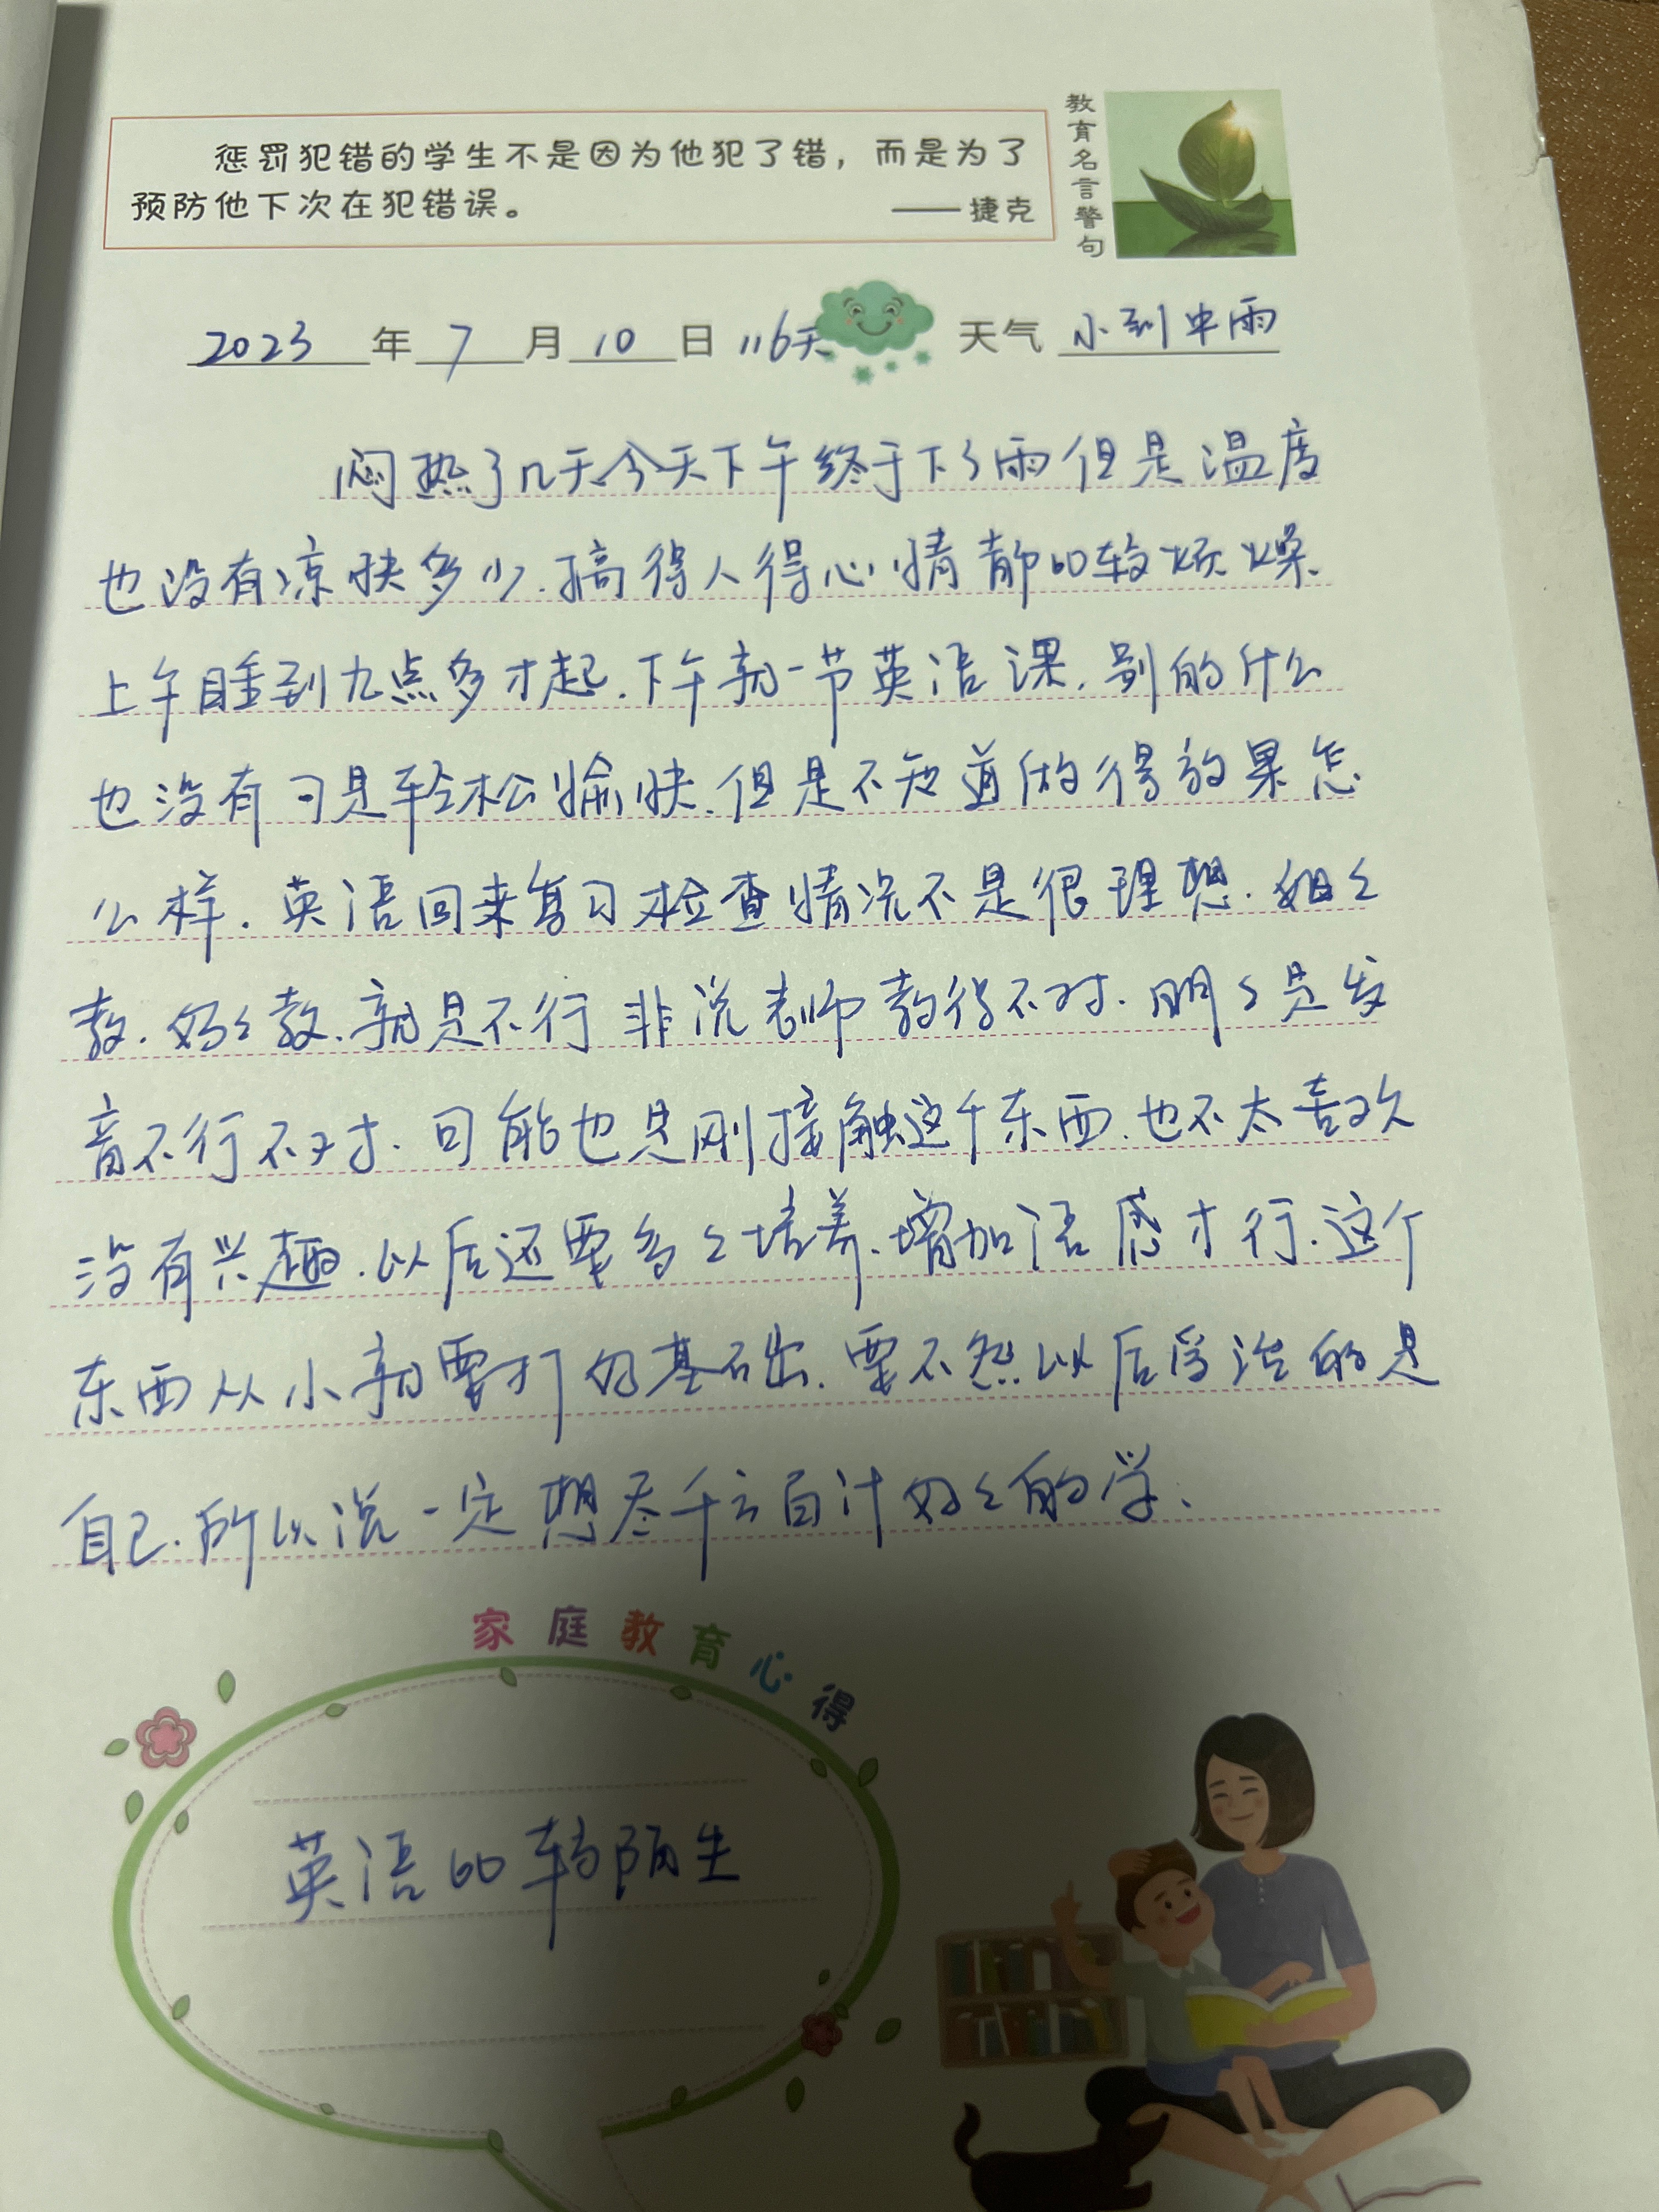 惩罚犯错的学生不是因为他犯了错，而是为了
预防他下次在犯错误。
——捷克
教育名言警句
2023年7月10日 116天 天气 小到中雨
闷热了几天今天下午终于下了雨但是温度
也没有凉快多少.搞得人得心情都比较烦燥
上午睡到九点多才起.下午就一节英语课.别的什么
也没有可是轻松愉快.但是不知道做得效果怎
么样.英语回来复习检查情况不是很理想.姐々
教.妈々教.就是不行非说老师教得不对.明々是发
音不行不对.可能也是刚接触这个东西.也不太喜欢
没有兴趣.以后还要多々培养.增加语感才行.这个
东西从小就要打好基础.要不然以后受治的是
自己.所以说一定想尽千方百计好々的学.
家庭教育心得
英语比较陌生